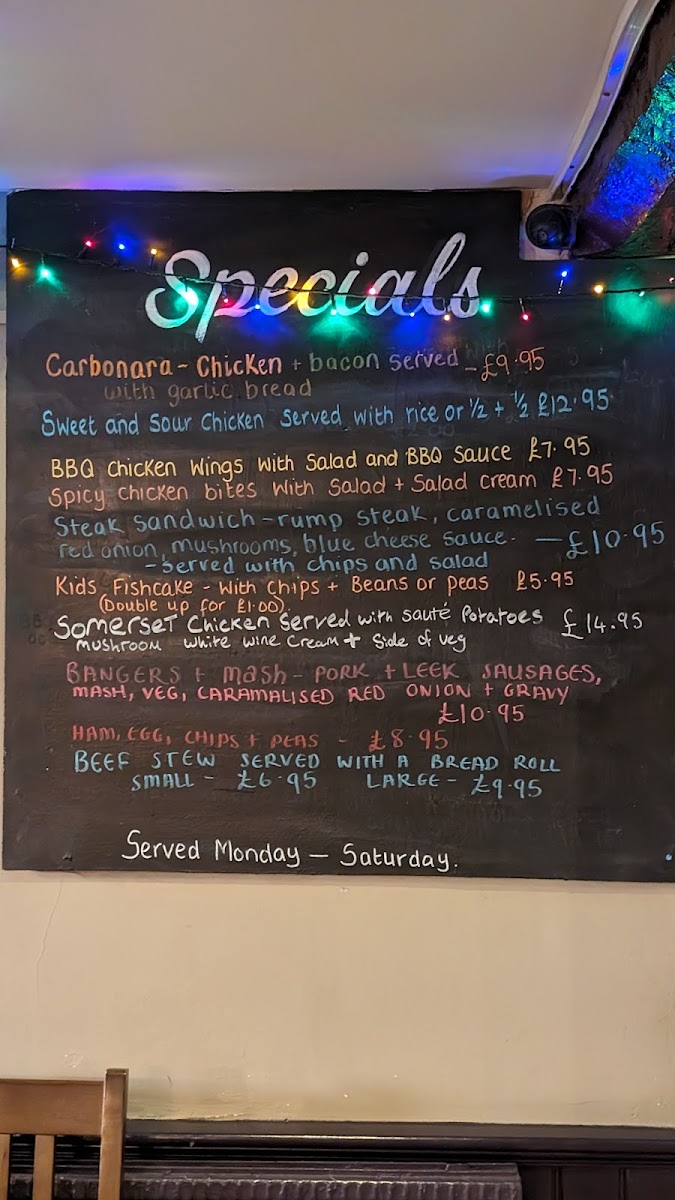 Specials
Carbonara - Chicken + bacon served - £9.95
with garlic bread
Sweet and Sour Chicken Served with rice or ½ + ½ £12.95
BBQ Chicken Wings with Salad and BBQ Sauce £7.95
Spicy chicken bites with Salad + Salad cream £7.95
Steak Sandwich - rump steak, caramelised
red onion, mushrooms, blue cheese sauce. - £10.95
- Served with chips and salad
Kids Fishcake - With Chips + Beans or peas £5.95
(Double up for £1.00)
Somerset Chicken Served with sauté Potatoes £14.95
Mushroom White Wine Cream + Side of veg
BANGERS + mash - PORK + LEEK SAUSAGES,
MASH, VEG, CARAMALISED RED ONION + GRAVY
£10.95
HAM, EGG, CHIPS + PEAS - £8.95
BEEF STEW SERVED WITH A BREAD ROLL
SMALL - £6.95 LARGE - £9.95
Served Monday — Saturday.